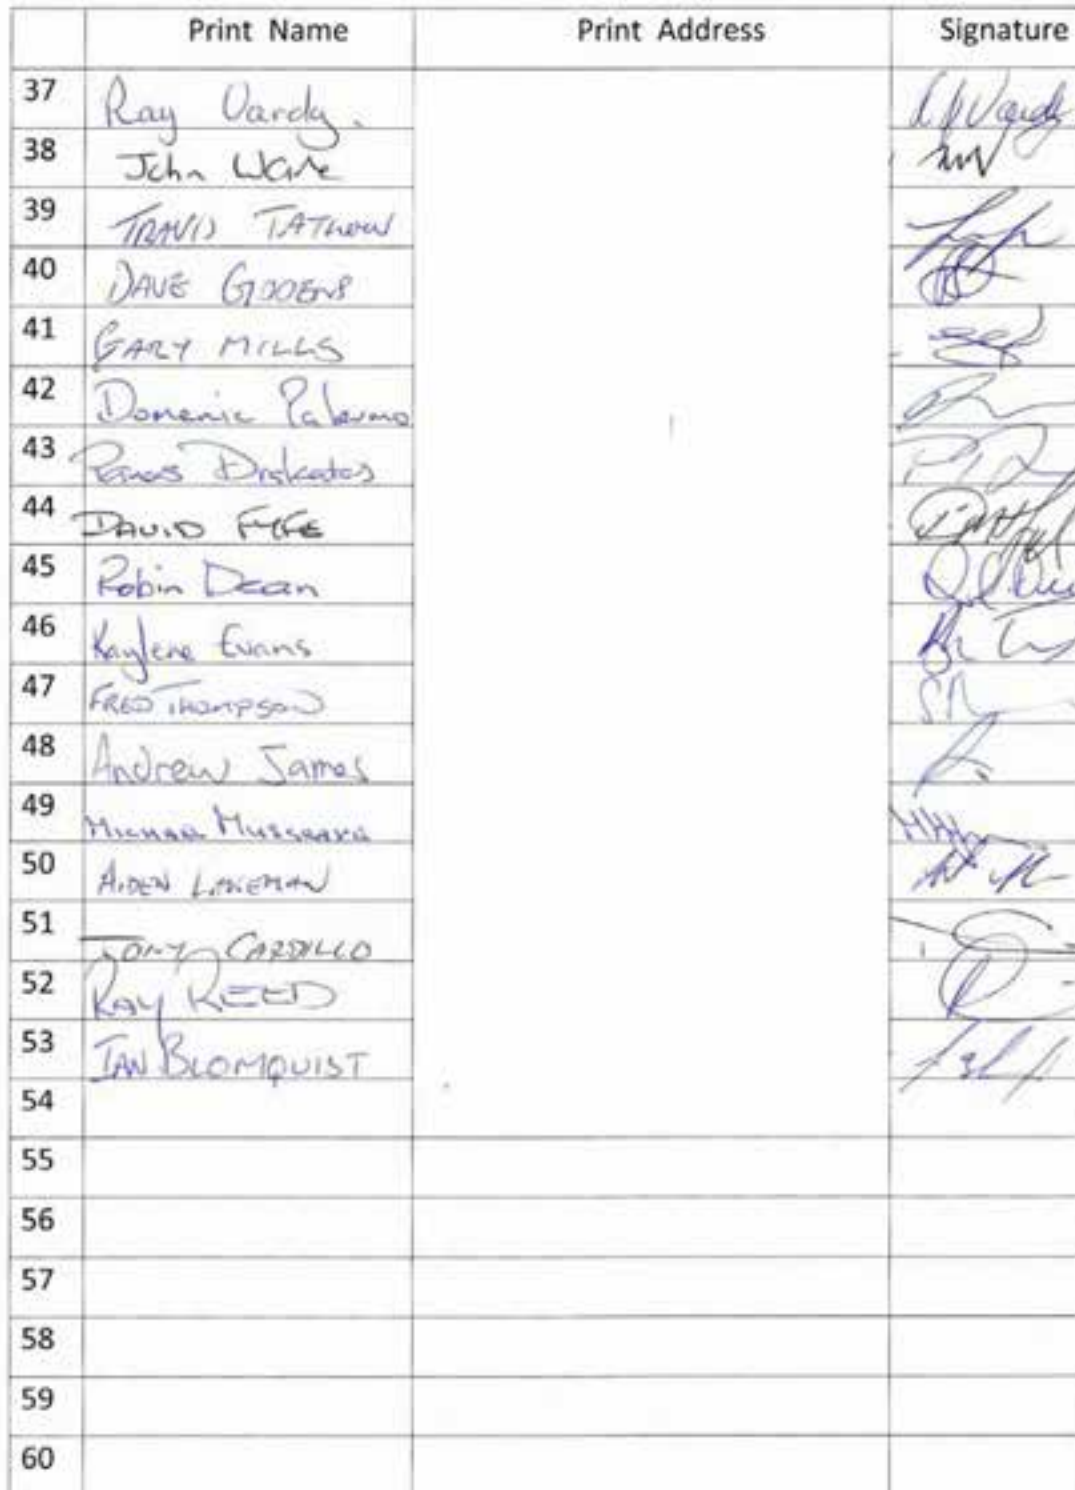 Print Name Print Address Signature
37 Ray Vardy.
38 John Ware
39 TRAVIS
40 DAVE GIDDENS
41 GARY MILLS
42 Domenic Palermo
43 Panos Diskatos
44 DAVID FYFE
45 Robin Dean
46 Kaylene Evans
47 FRED THOMPSON
48 Andrew James
49 MUSGRAVE
50 AIDEN LAKEMAN
51 TONY CARDILLO
52 RAY REED
53 IAN BLOMQUIST
54
55
56
57
58
59
60